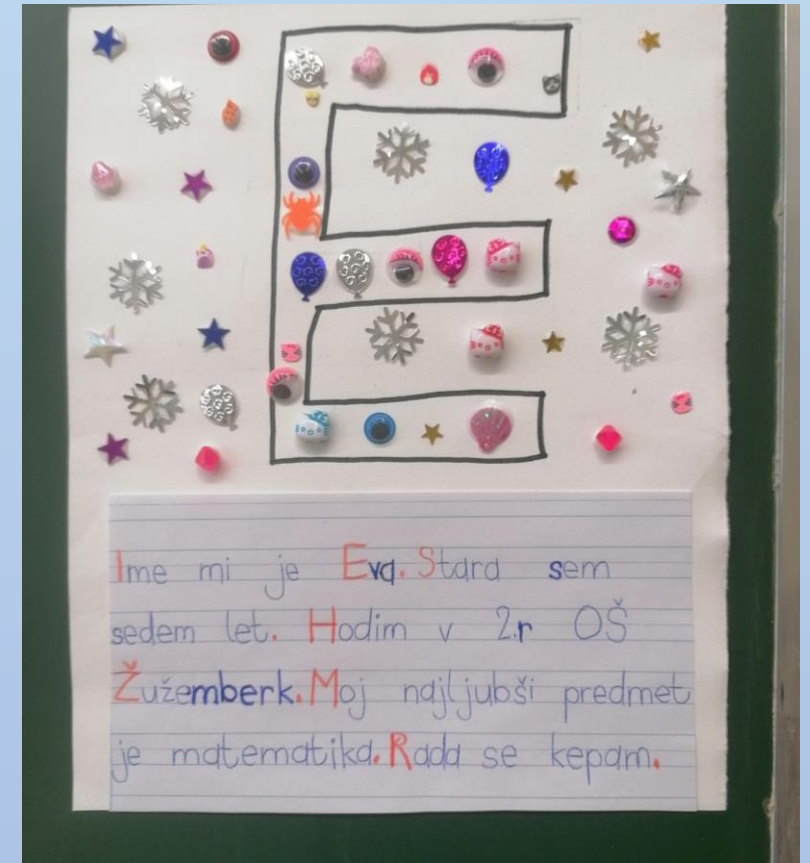 E
Ime mi je Eva. Stara sem
sedem let. Hodim v 2.r OŠ
Žužemberk. Moj najljubši predmet
je matematika. Rada se kepam.